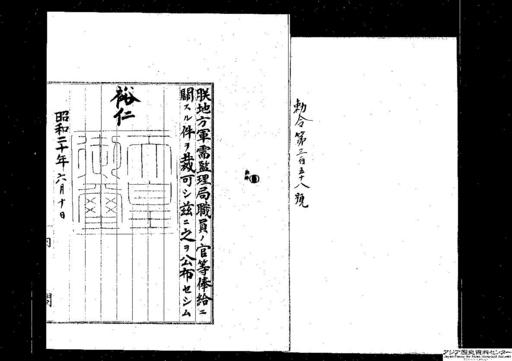 勅令第三百五十八號
朕地方軍需監理局職員ノ官等俸給ニ
關スル件ヲ裁可シ茲ニ之ヲ公布セシム
裕仁
天皇御璽
昭和二十年六月十日
内閣
アジア歴史資料センター